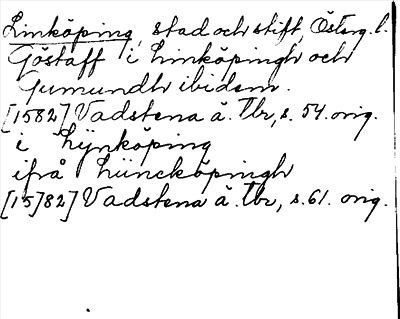 Linköping, stad och stift, Österg. l.
Göstaff i Linköpingh och
Gumundh ibidem.
[1582] Vadstena ä. Tbr, s. 54. orig.
i Lÿnköping
ifrå Lüncköpingh
[15]82] Vadstena ä. Tbr, s. 61. orig.